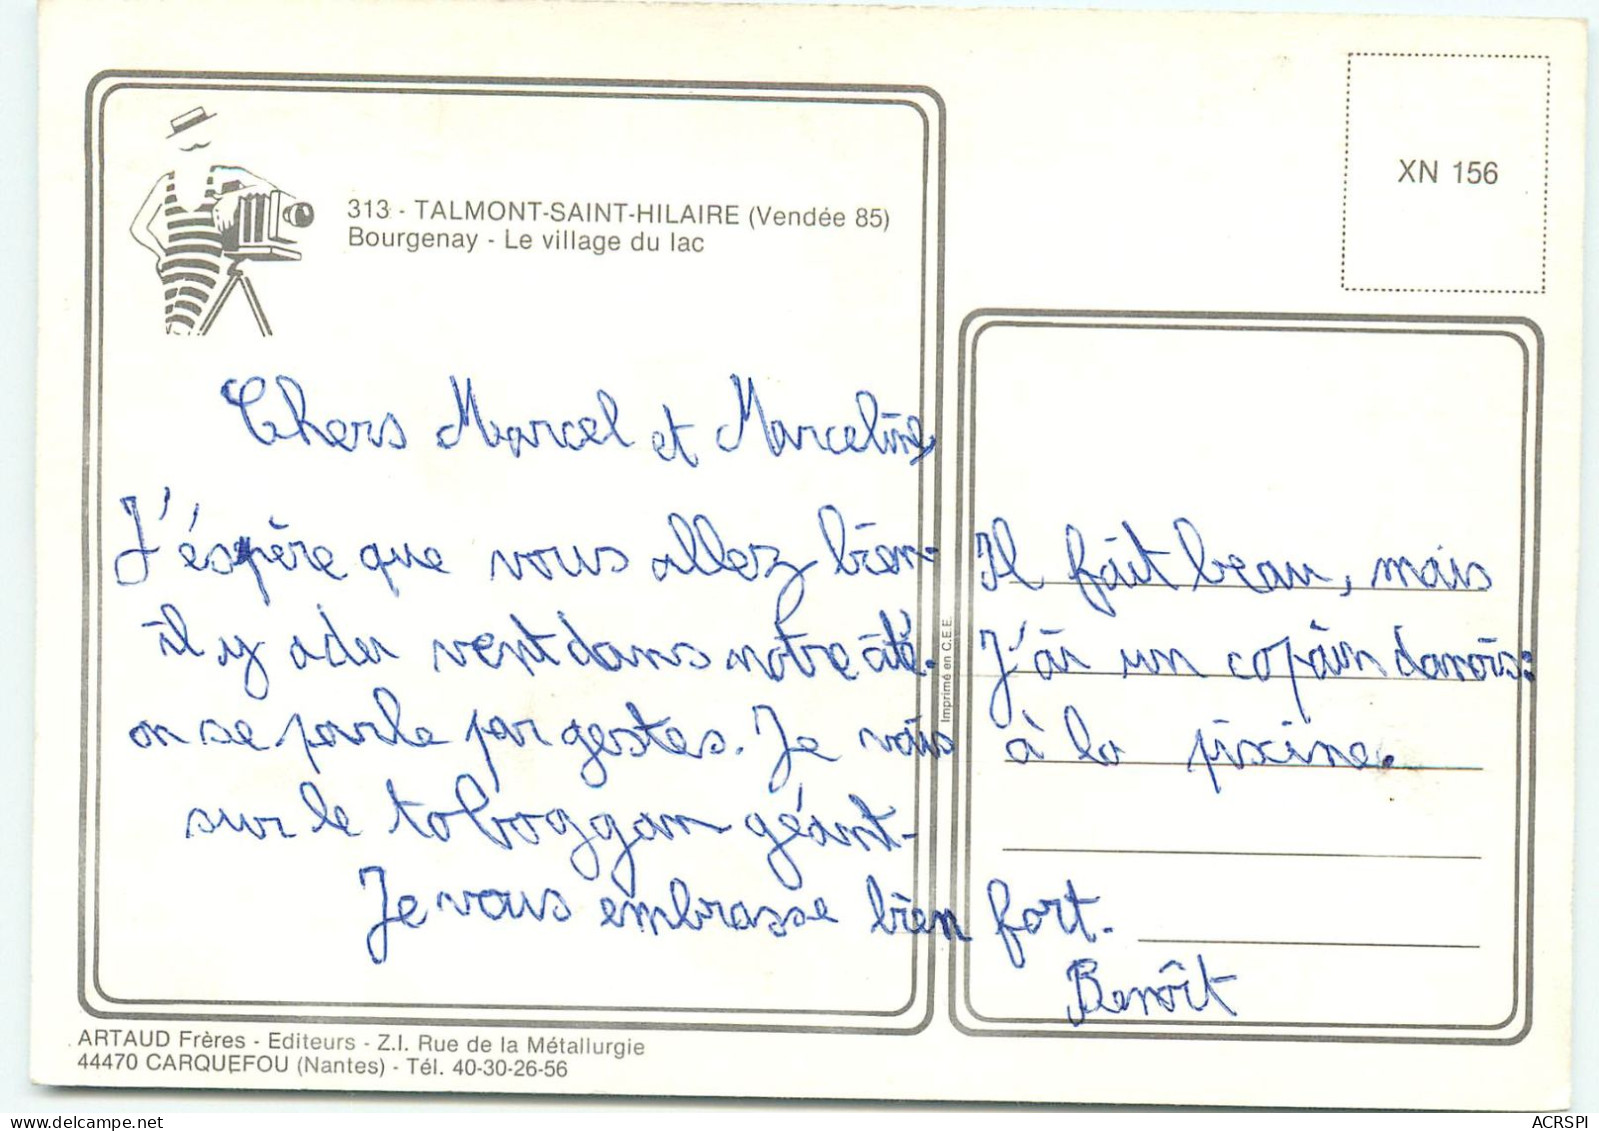 XN 156
313 - TALMONT-SAINT-HILAIRE (Vendée 85)
Bourgenay - Le village du lac
Chers Marcel et Marceline
J'éspère que vous allez bien.
il y a du vent dans notre été.
on se parle par gestes. Je vais
sur le toboggan géant.
Je vous embrasse bien fort.
Il fait beau, mais
J'ai un copain danois:
à la piscine.
Benoît
Imprimé en C.E.E.
ARTAUD Frères - Editeurs - Z.I. Rue de la Métallurgie
44470 CARQUEFOU (Nantes) - Tél. 40-30-26-56
ACRSPI
delcampe.net